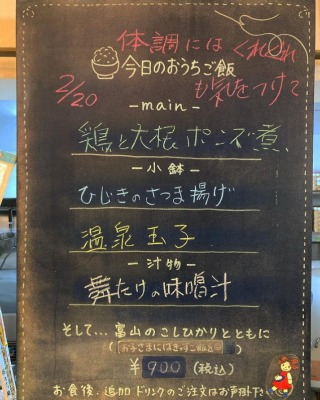 体調には くれぐれ
も気をつけて
今日のおうちご飯
2/20
-main-
鶏と大根 ポンズ煮、
-小鉢-
ひじきのさつま揚げ
温泉玉子
-汁物-
舞たけの味噌汁
そして... 富山のこしひかりとともに
¥900 (税込)
お食後、追加ドリンクのご注文はお声掛下さい